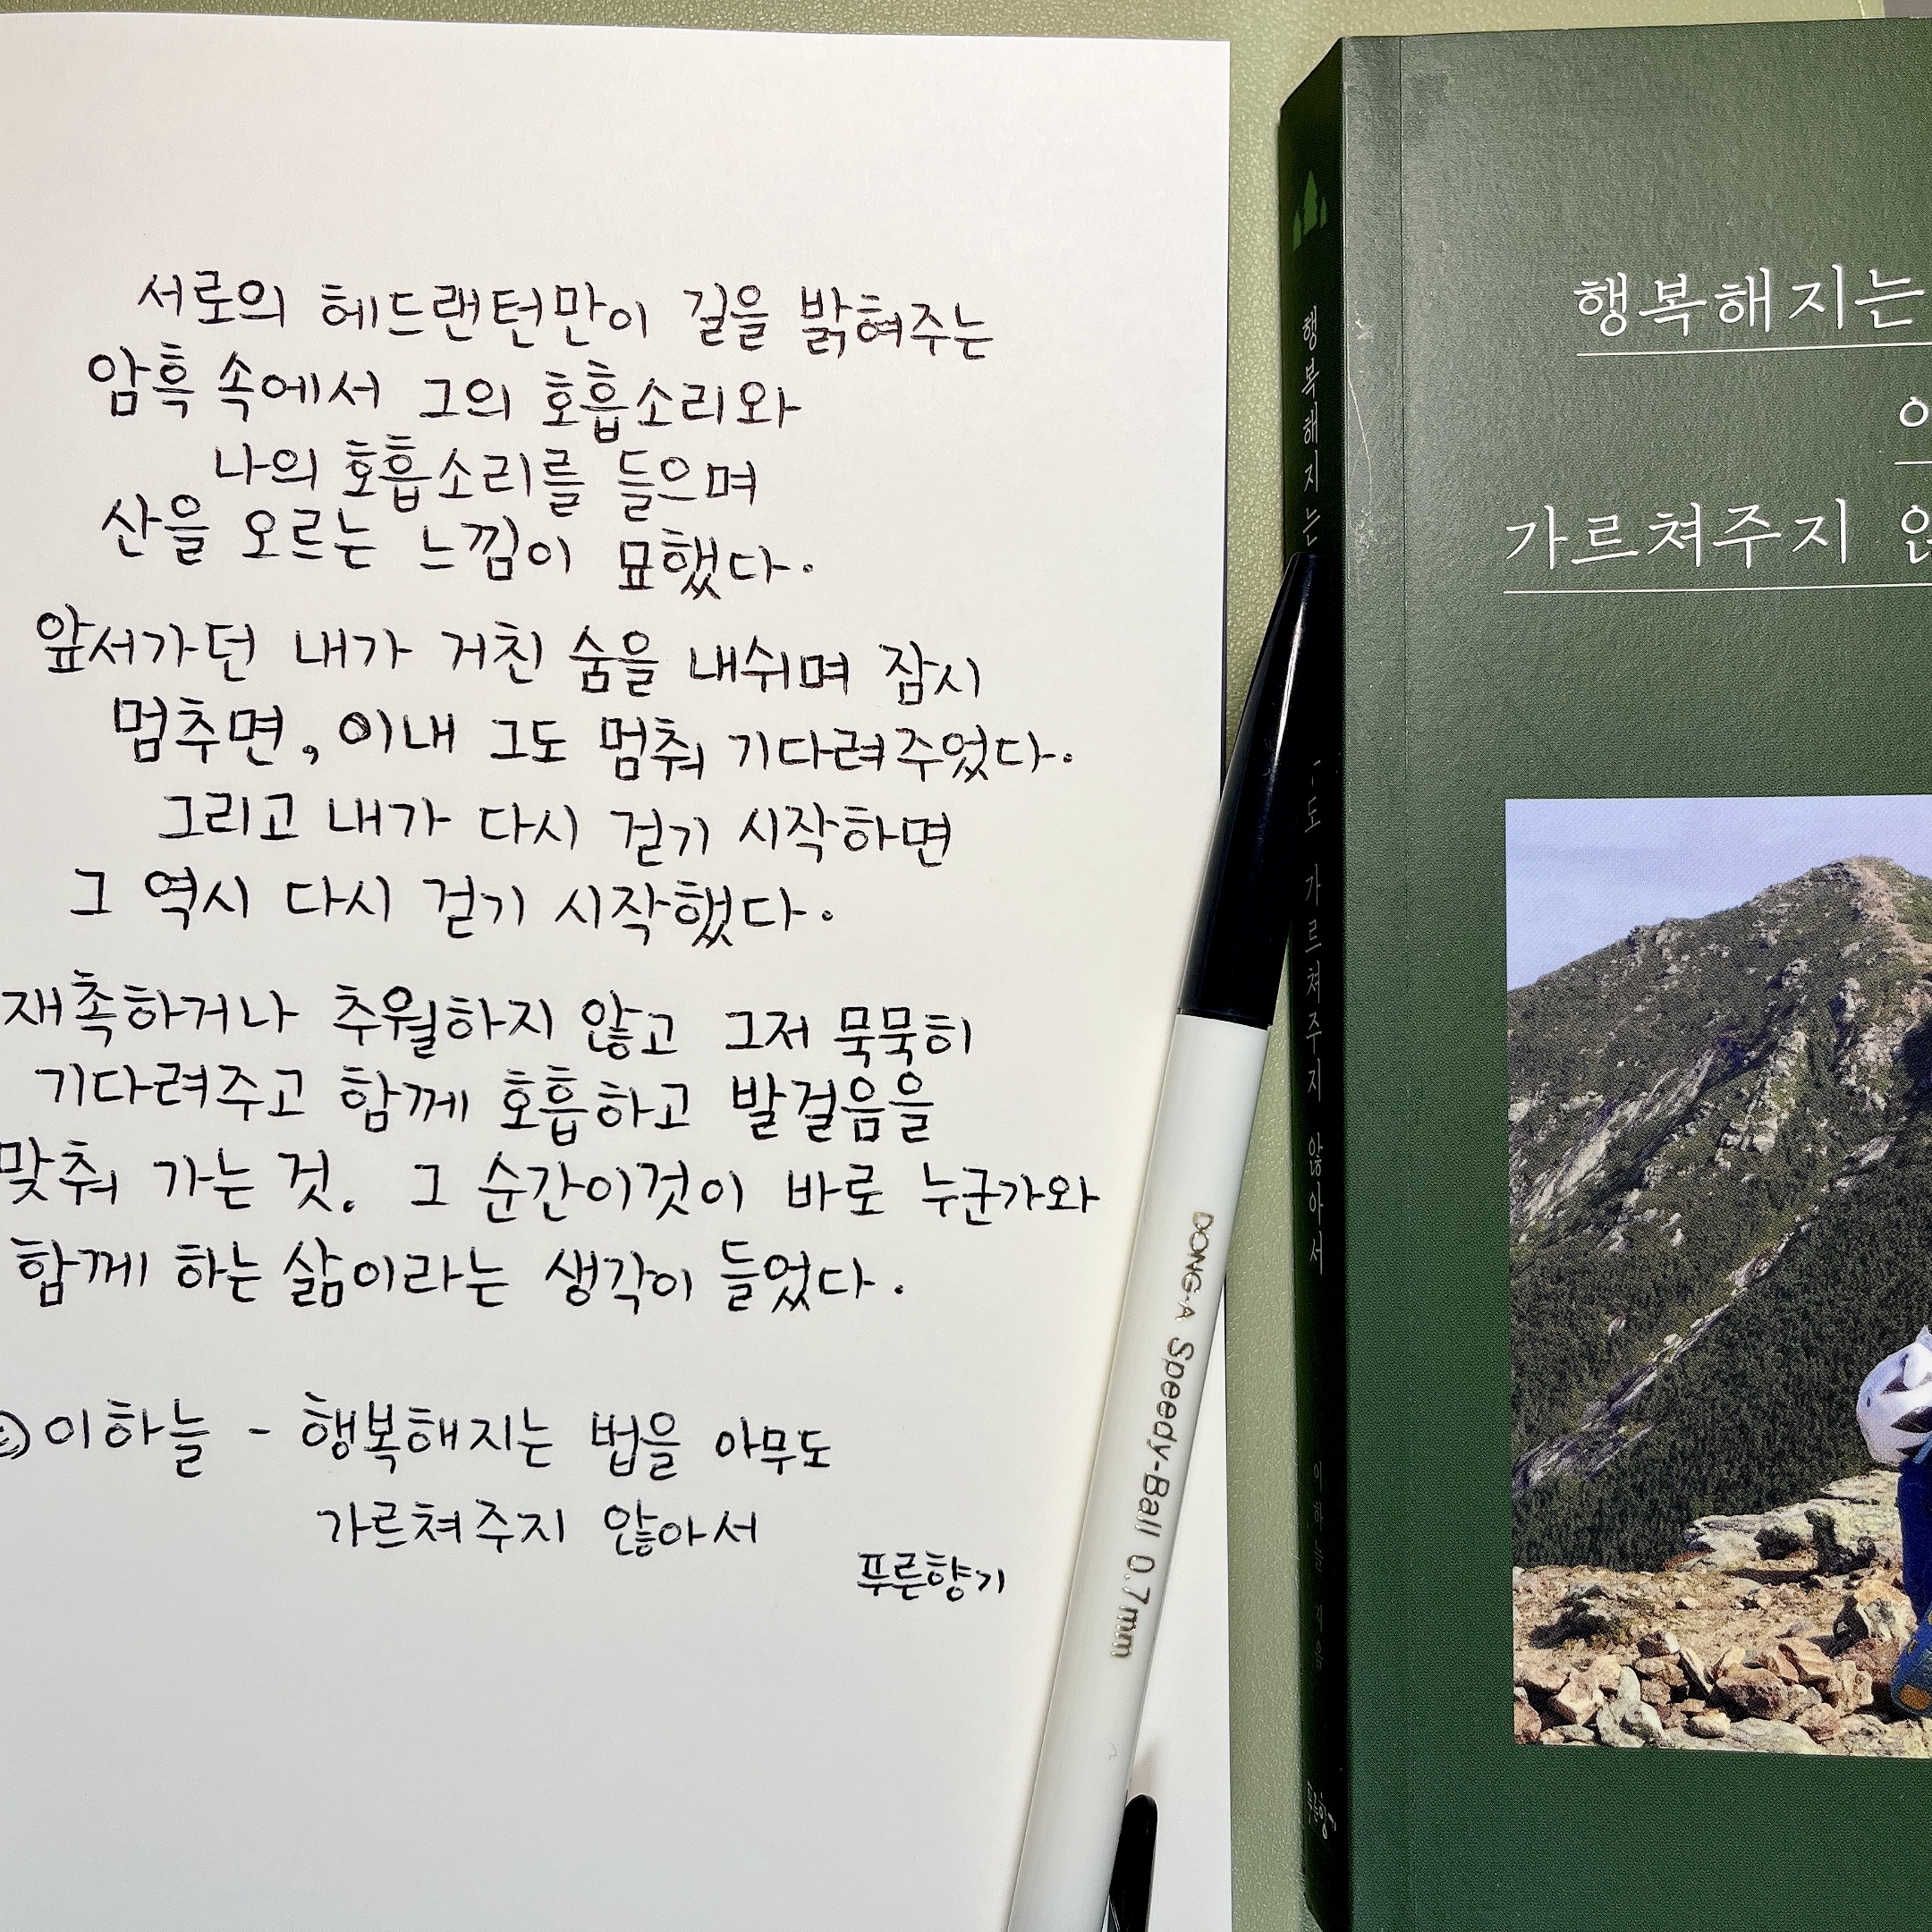 서로의 헤드랜턴만이 길을 밝혀주는
암흑 속에서 그의 호흡소리와
나의 호흡소리를 들으며
산을 오르는 느낌이 묘했다.
앞서가던 내가 거친 숨을 내쉬며 잠시
멈추면, 이내 그도 멈춰 기다려주었다.
그리고 내가 다시 걷기 시작하면
그 역시 다시 걷기 시작했다.
재촉하거나 추월하지 않고 그저 묵묵히
기다려주고 함께 호흡하고 발걸음을
맞춰 가는 것. 그 순간이것이 바로 누군가와
함께 하는 삶이라는 생각이 들었다.
이하늘 - 행복해지는 법을 아무도
가르쳐주지 않아서
푸른향기
DONG-A Speedy-Ball 0.7mm
행복해지는
도 가르쳐주지 않아서
이하늘 지음
푸른향기
행복해지는
가르쳐주지